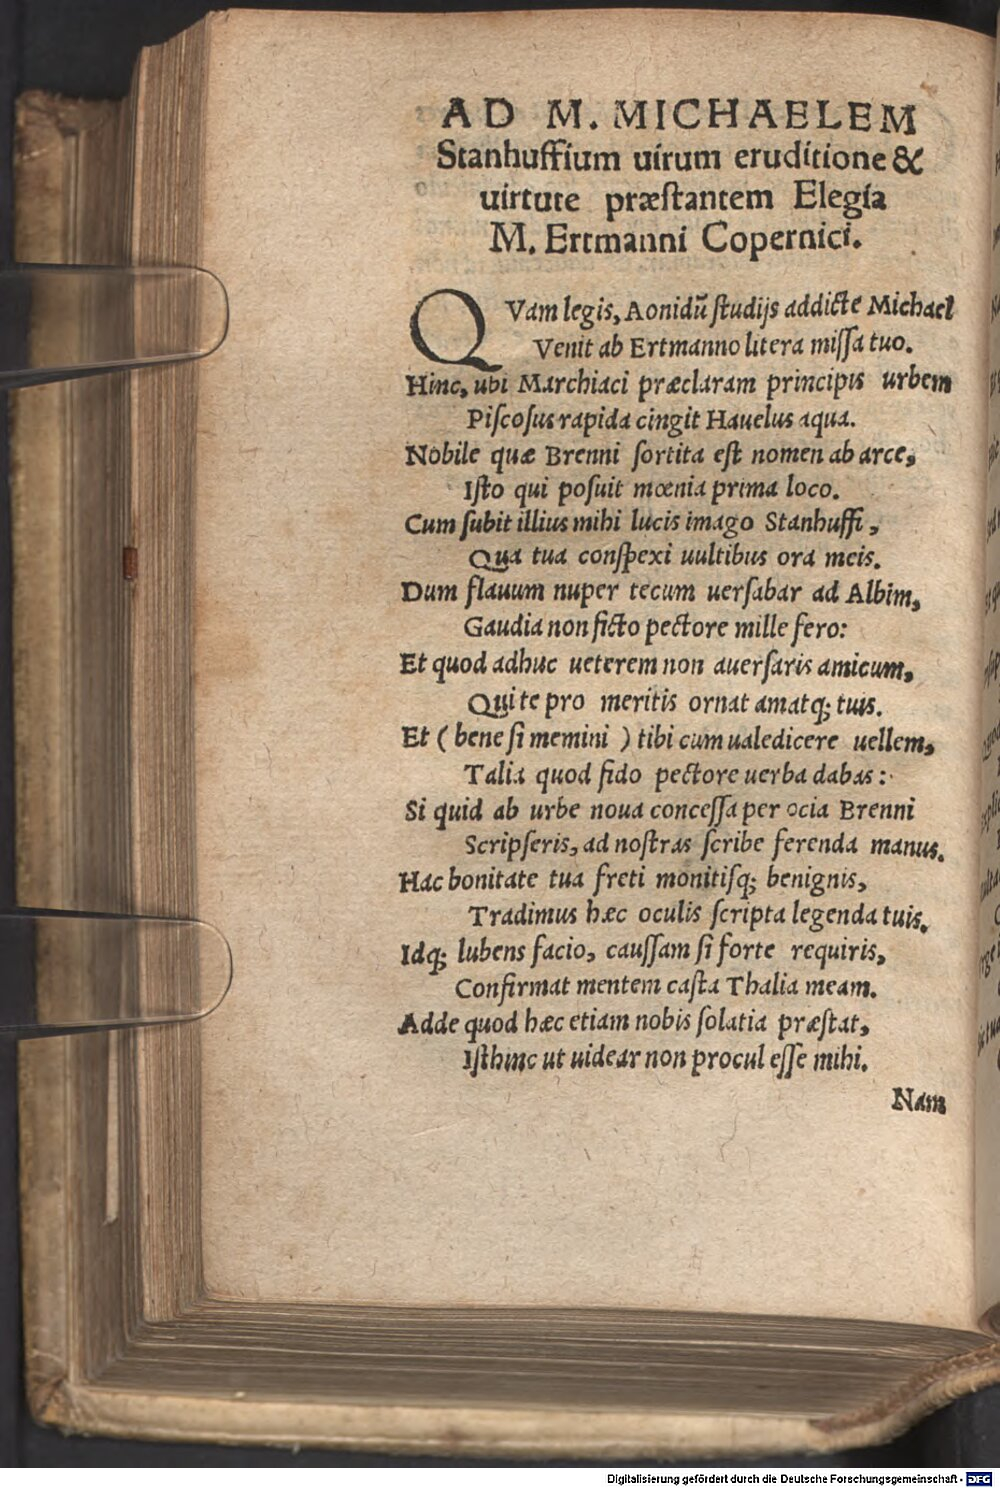 AD M. MICHAELEM
Stanhuffium uirum eruditione &
uirtute præstantem Elegia
M. Ertmanni Copernici.
QVam legis, Aonidũ studijs addicte Michael
Venit ab Ertmanno litera missa tuo.
Hinc, ubi Marchiaci præclaram principis urbem
Piscosus rapida cingit Hauelus aqua.
Nobile quæ Brenni sortita est nomen ab arce,
Isto qui posuit mœnia prima loco.
Cum subit illius mihi lucis imago Stanhuffi,
Qua tua conspexi uultibus ora meis.
Dum flauum nuper tecum uersabar ad Albim,
Gaudia non ficto pectore mille fero:
Et quod adhuc ueterem non auersaris amicum,
Qui te pro meritis ornat amatq; tuis.
Et ( bene si memini ) tibi cum ualedicere uellem,
Talia quod fido pectore uerba dabas:
Si quid ab urbe noua concessa per ocia Brenni
Scripseris, ad nostras scribe ferenda manus.
Hac bonitate tua freti monitisq; benignis,
Tradimus hæc oculis scripta legenda tuis.
Idq; lubens facio, caussam si forte requiris,
Confirmat mentem casta Thalia meam.
Adde quod hæc etiam nobis solatia præstat,
Isthinc ut uidear non procul esse mihi.
Nam
Digitalisierung gefördert durch die Deutsche Forschungsgemeinschaft - DFG